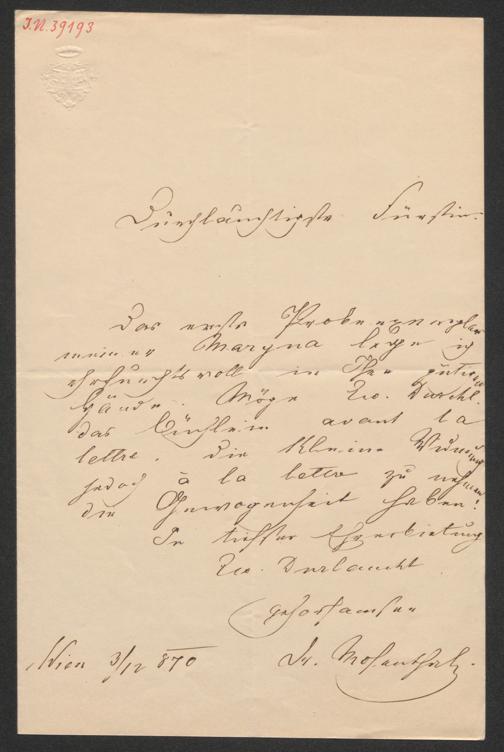 I.N. 39193
Durchlauchtigste Fürstin.
Das erste Probeexemplar
meiner Maryna lege ich
ehrfurchtsvoll in Ihre gütigen
Hände. Möge Ew. Durchl.
das Büchlein avant la
lettre, die kleine Widmung
jedoch à la lettre zu nehmen
die Gewogenheit haben!
In tiefster Ehrerbietung
Ew. Durlaucht
gehorsamster
Dr. Mosenthal.
Wien 3/12 870